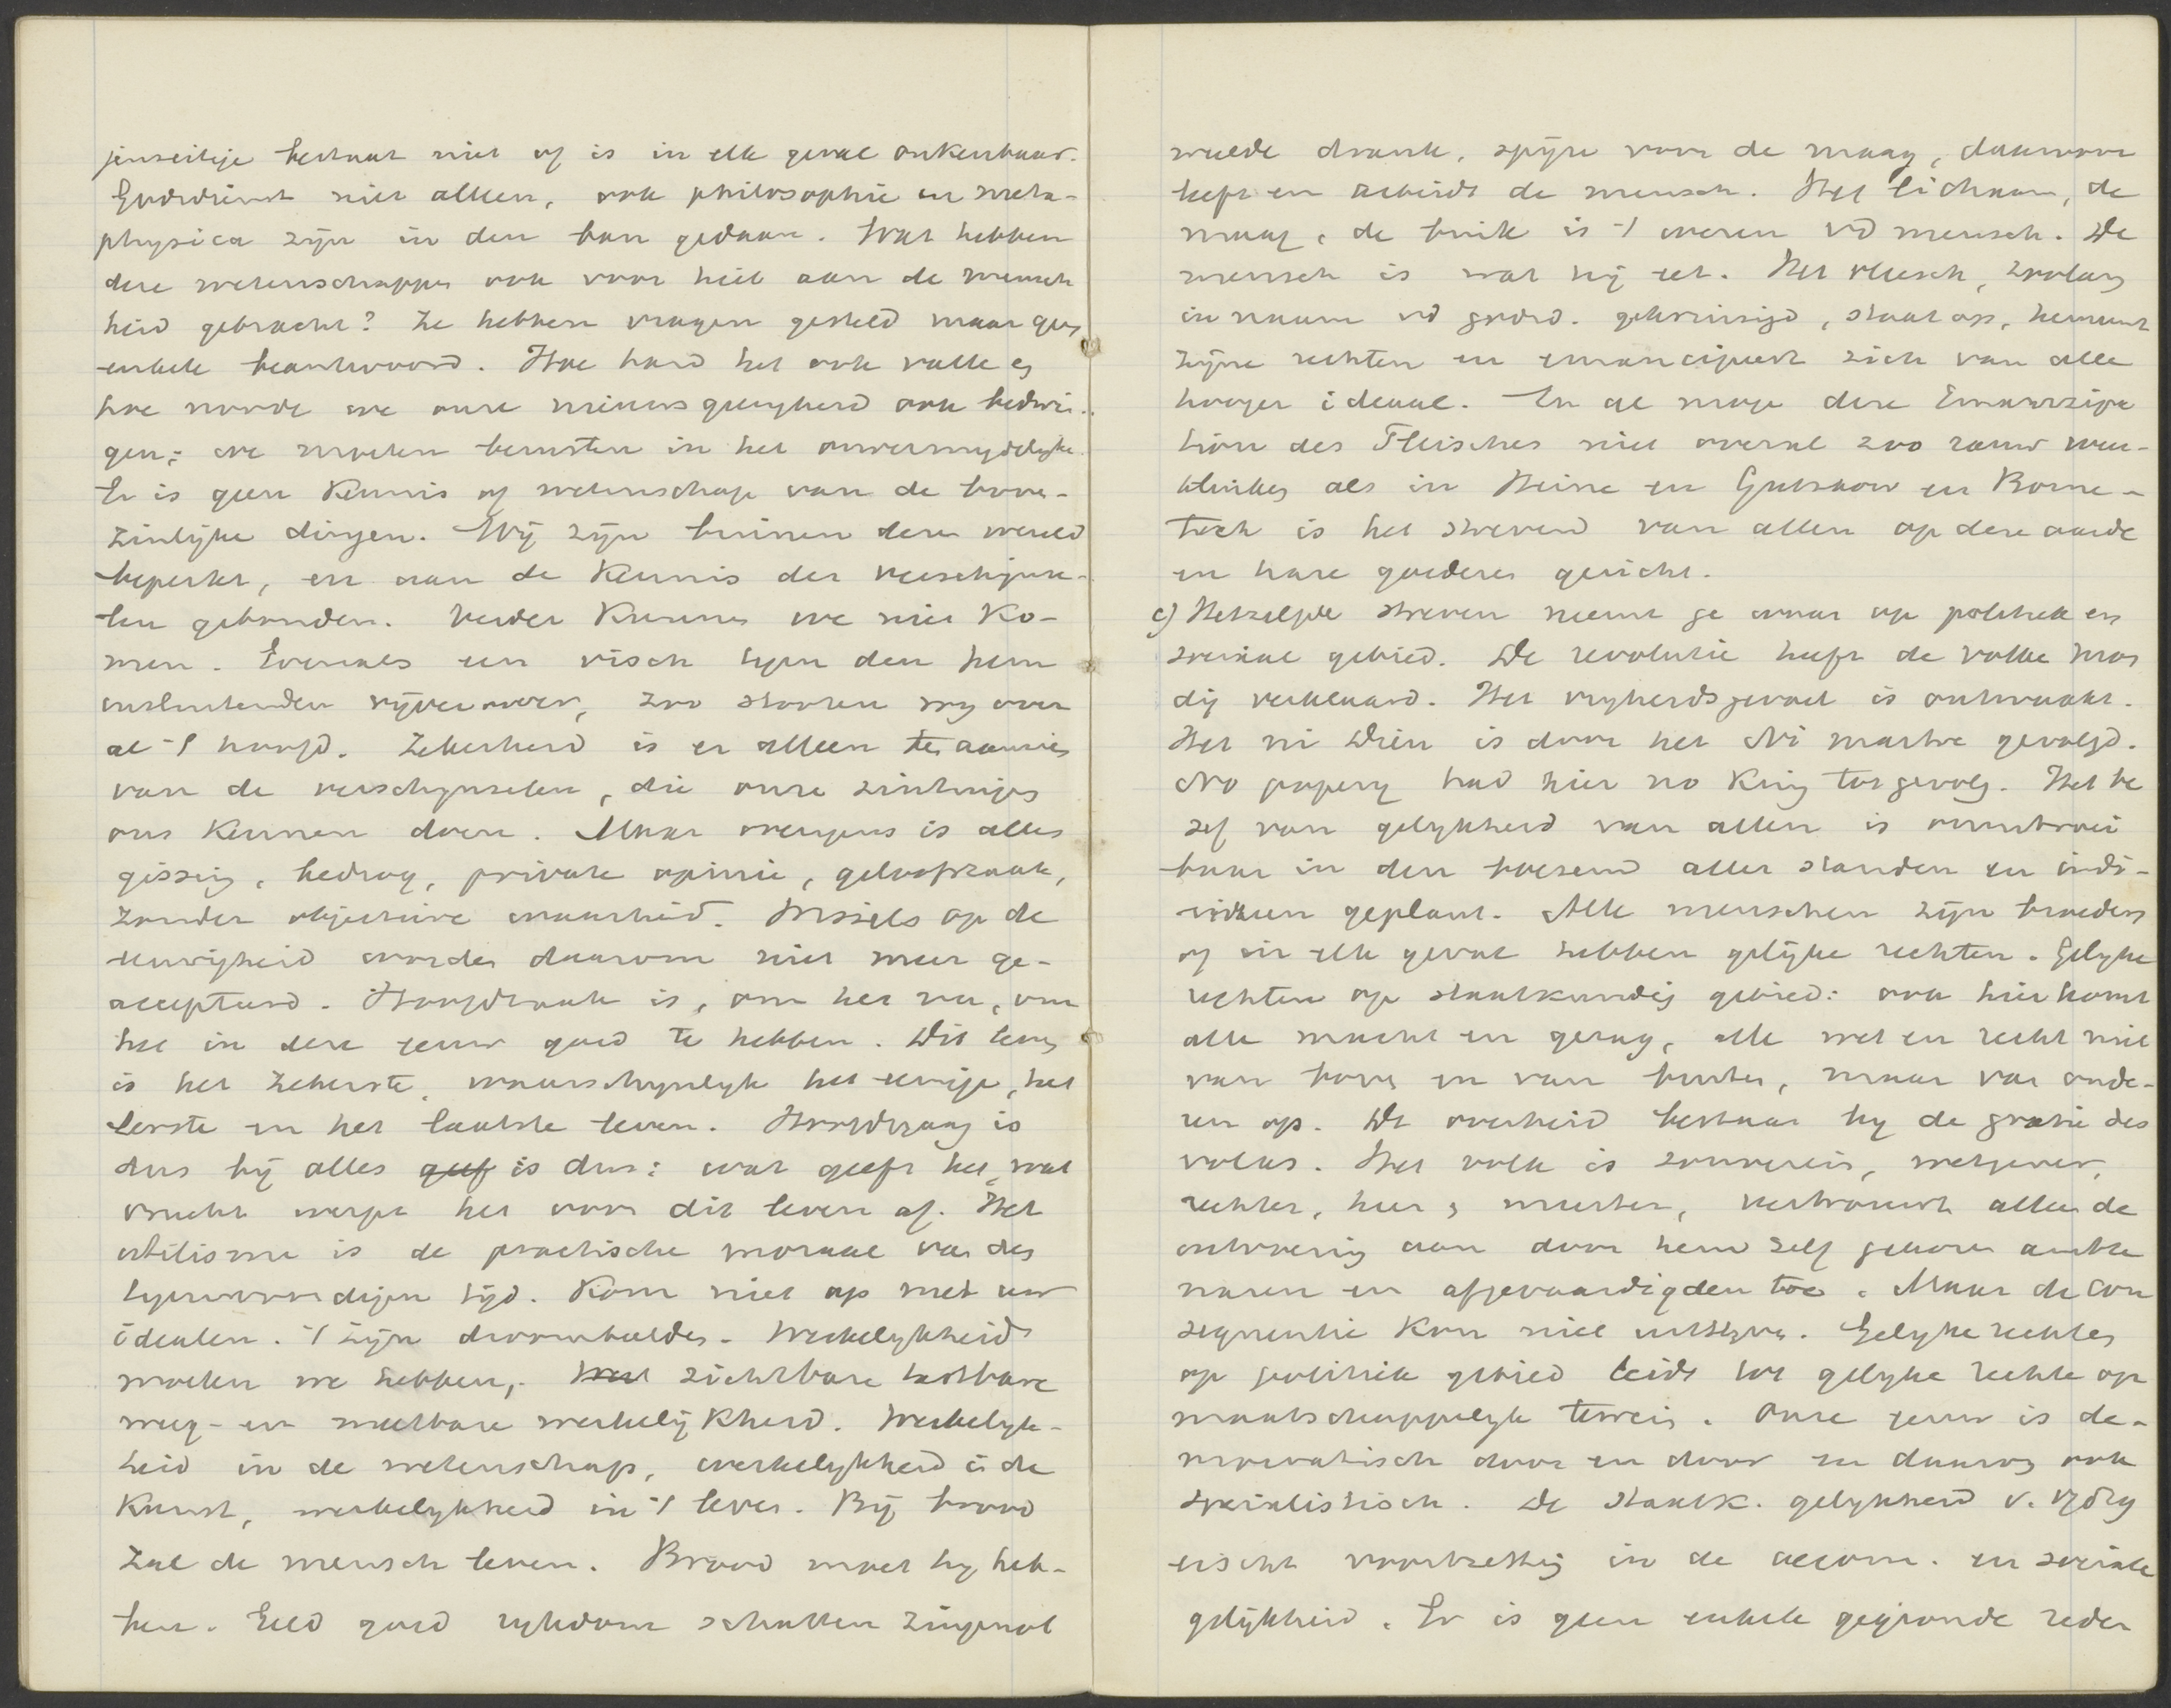 jenseitige bestaat niet of is in elk geval onkenbaar.
Godsdienst niet alleen, ook philosophie en meta-
physica zijn in den ban gedaan. Wat hebben
deze wetenschappen ook voor heil aan de mensch
heid gebracht? Ze hebben vragen gesteld maar geen
enkele beantwoord. Hoe hard het ook valle en
hoe noode we onze nieuwsgierigheid ook bedwin-
gen; we moeten berusten in het onvermijdelijke.
Er is geen kennis of wetenschap van de boven-
zinlijke dingen. Wij zijn binnen deze wereld
beperkt, en aan de kennis der verschijnse-
len gebonden. Verder kunnen we niet ko-
men. Evenals een visch tegen den hem
insluitenden vijveroever, zoo stooten wij over
al 't hoofd. Zekerheid is er alleen ten aanzien
van de verschijnselen, die onze zintuigen
ons kennen doen. Maar overigens is alles
gissing, bedrog, private opinie, geloofszaak,
zonder objectieve waarheid. Wissels op de
eeuwigheid worden daarom niet meer ge-
accepteerd. Hoofdzaak is, om het nu, om
het in deze eeuw goed te hebben. Dit leven
is het zekerste, waarschijnlijk het eenige, het
eerste en het laatste leven. Hoofdvraag is
dus bij alles geef is dus: wat geeft het, wat
vrucht werpt het voor dit leven af. Het
utilisme is de practische moraal van den
tegenwoordigen tijd. Kom niet op met uw
idealen. 't zijn droombeelden. Werkelijkheid
moeten we hebben, zichtbare tastbare
weeg- en meetbare werkelijkheid. Werkelijk-
heid in de wetenschap, werkelijkheid in de
kunst, werkelijkheid in 't leven. Bij brood
zal de mensch leven. Brood moet hij heb-
ben. Geld goed rijkdom schatten zingenot
weelde drank, spijze voor de maag, daarvoor
leeft en arbeidt de mensch. Het lichaam, de
maag, de buik is 't wezen vd mensch. De
mensch is wat hij eet. Het vleesch, zoolang
in naam vd godsd. gekruisigd, staat op, herneemt
zijne rechten en emancipeert zich van alle
hooger ideaal. En al moge deze Emanzipa
tion des Fleisches niet overal zoo rauw weer-
klinken als in Heine en Gutzkow en Borne-
toch is het streven van allen op deze aarde
en hare goederen gericht.
c) Hetzelfde streven neemt ge waar op politiek en
sociaal gebied. De revolutie heeft de volke mon
dig verklaard. Het vrijheidsgevoel is ontwaakt.
Het ni Dieu is door het Ni maitre gevolgd.
No popery had hier no King tot gevolg. Het be
sef van gelijkheid van allen is onuitroei
baar in den boezem aller standen en indi-
viduen geplant. Alle menschen zijn broeders
of in elk geval hebben gelijke rechten. Gelijke
rechten op staatkundig gebied: ook hier komt
alle macht en gezag, alle wet en recht niet
van boven en van buiten, maar van onde-
ren op. De overheid bestaat bij de gratie des
volks. Het volk is souverein, wetgever,
rechter, heer, meester, vertrouwt alleen de
uitvoering aan door hem zelf gekozen ambte
naren en afgevaardigden toe. Maar de con
sequentie kon niet uitblijven. Gelijke rechten
op politiek gebied leidt tot gelijke rechten op
maatschappelijk terrein. Onze eeuw is de-
mocratisch door en door en daarom ook
socialistisch. De staatk. gelijkheid v.
eischt voortzetting in de oecon. en sociale
gelijkheid. Er is geen enkele gegronde reden